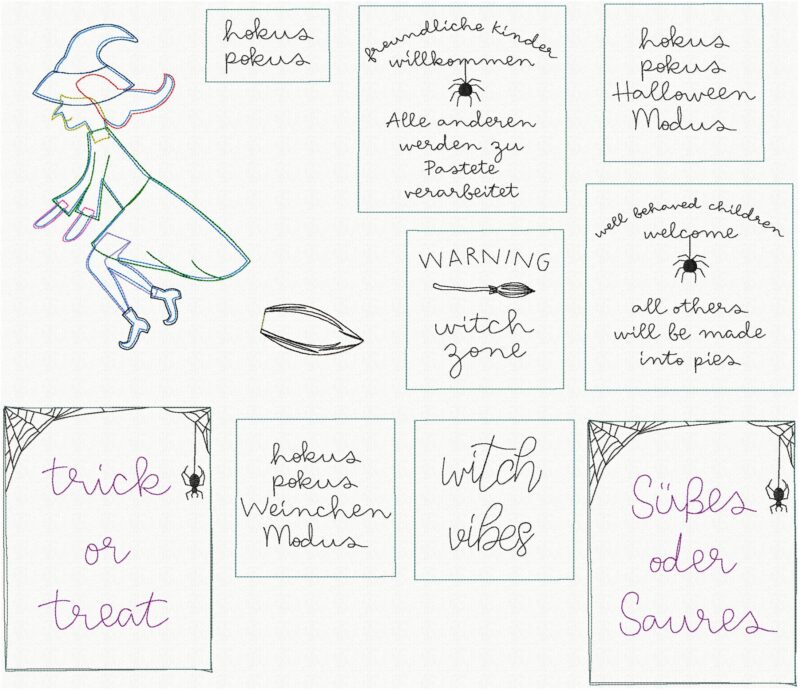 hokus
pokus
freundliche kinder
willkommen
Alle anderen
werden zu
Pastete
verarbeitet
hokus
pokus
Halloween
Modus
WARNING
witch
zone
well behaved children
welcome
all others
will be made
into pies
trick
or
treat
hokus
pokus
Weinchen
Modus
witch
vibes
Süßes
oder
Saures